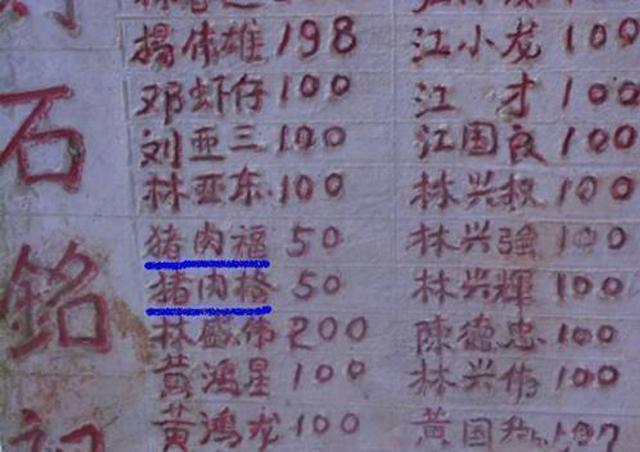 揚伟雄 198 江小龙 100
邓虾仔 100 江 才 100
刘亚三 100 江国良 100
林亚东 100 林兴权 100
猪肉福 50 林兴強 100
猪肉格 50 林兴輝 100
林盛伟 200 陳德忠 100
黄鴻星 100 林兴伟 100
黄鴻龙 100 黄国
石
銘